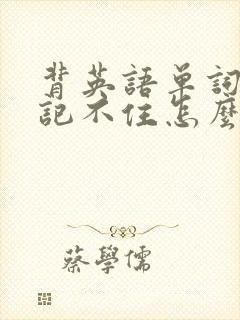 背英語單詞
記不住怎麼
蔡學儒